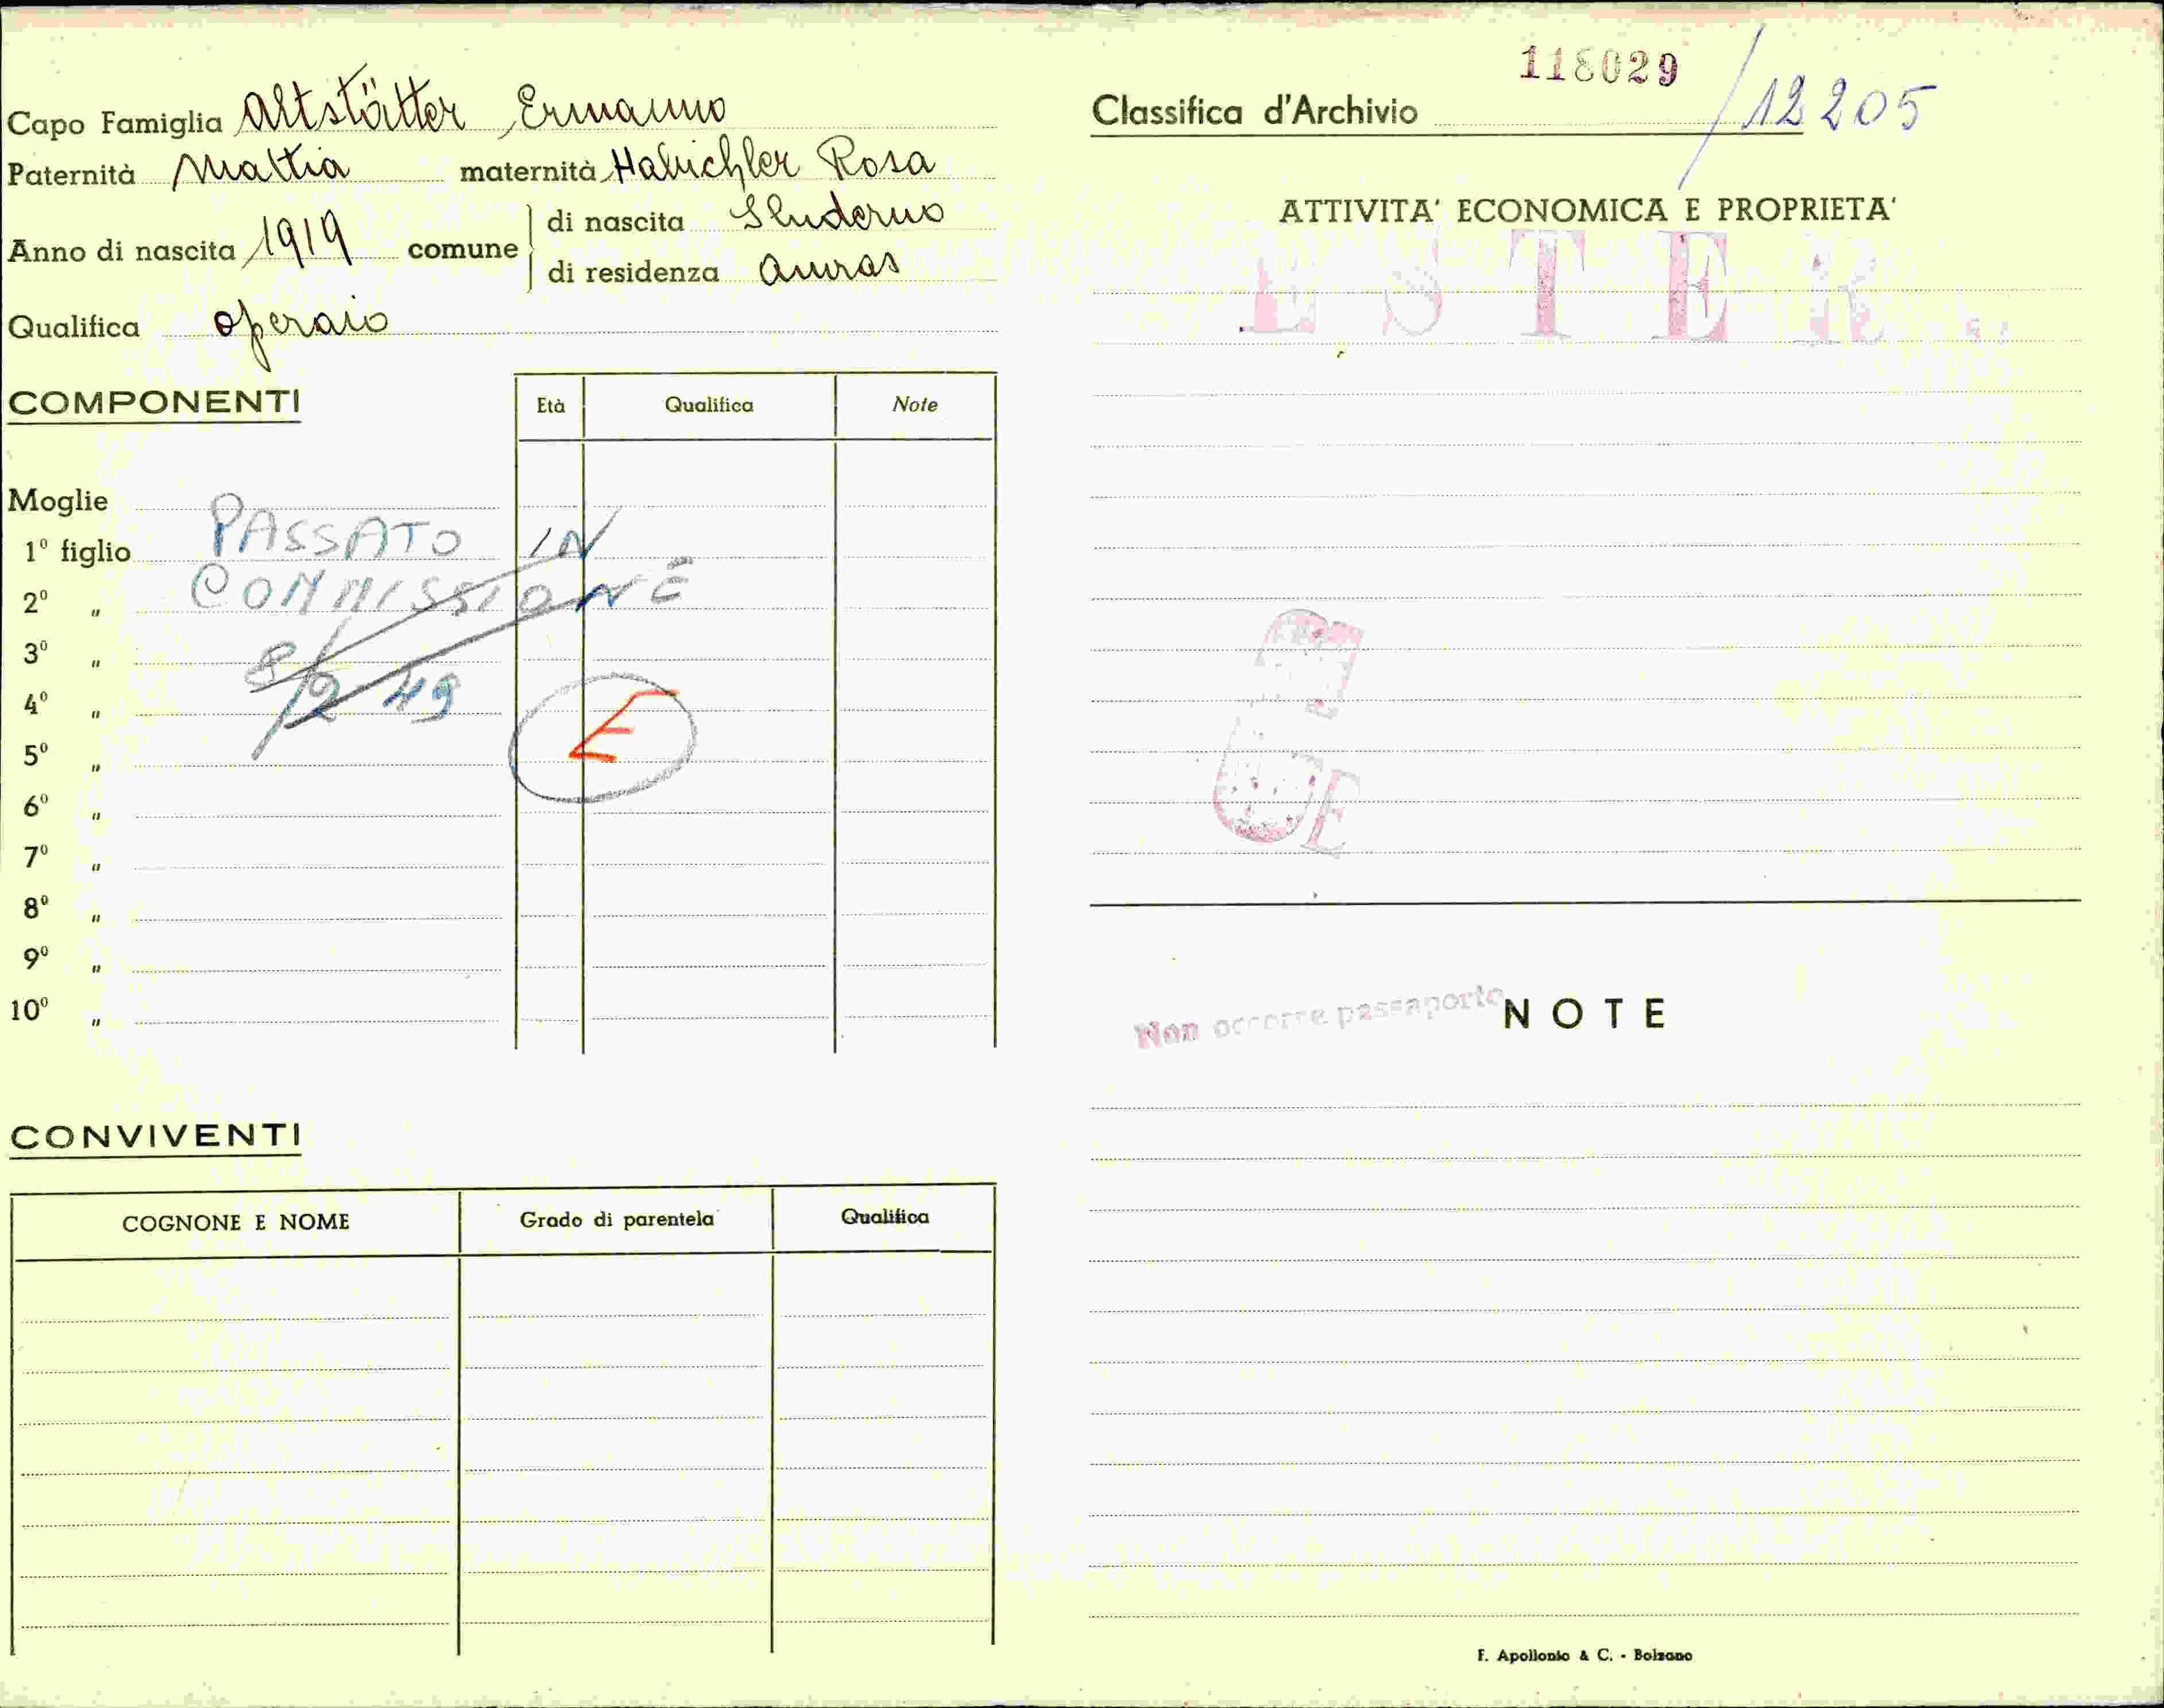 118029
Classifica d'Archivio /12205
Capo Famiglia Altstötter Ermanno
Paternità Mattia maternità Rosa
Anno di nascita 1919 comune di nascita Sluderno
di residenza Amras
Qualifica operaio
COMPONENTI
Età Qualifica Note
Moglie
1° figlio
2° "
3° "
4° "
5° "
6° "
7° "
8° "
9° "
10° "
PASSATO IN
COMMISSIONE
8/2 49
E
CONVIVENTI
COGNONE E NOME Grado di parentela Qualifica
ATTIVITA' ECONOMICA E PROPRIETA'
ESTER
Non occorre passaporto
NOTE
F. Apollonio & C. - Bolzano